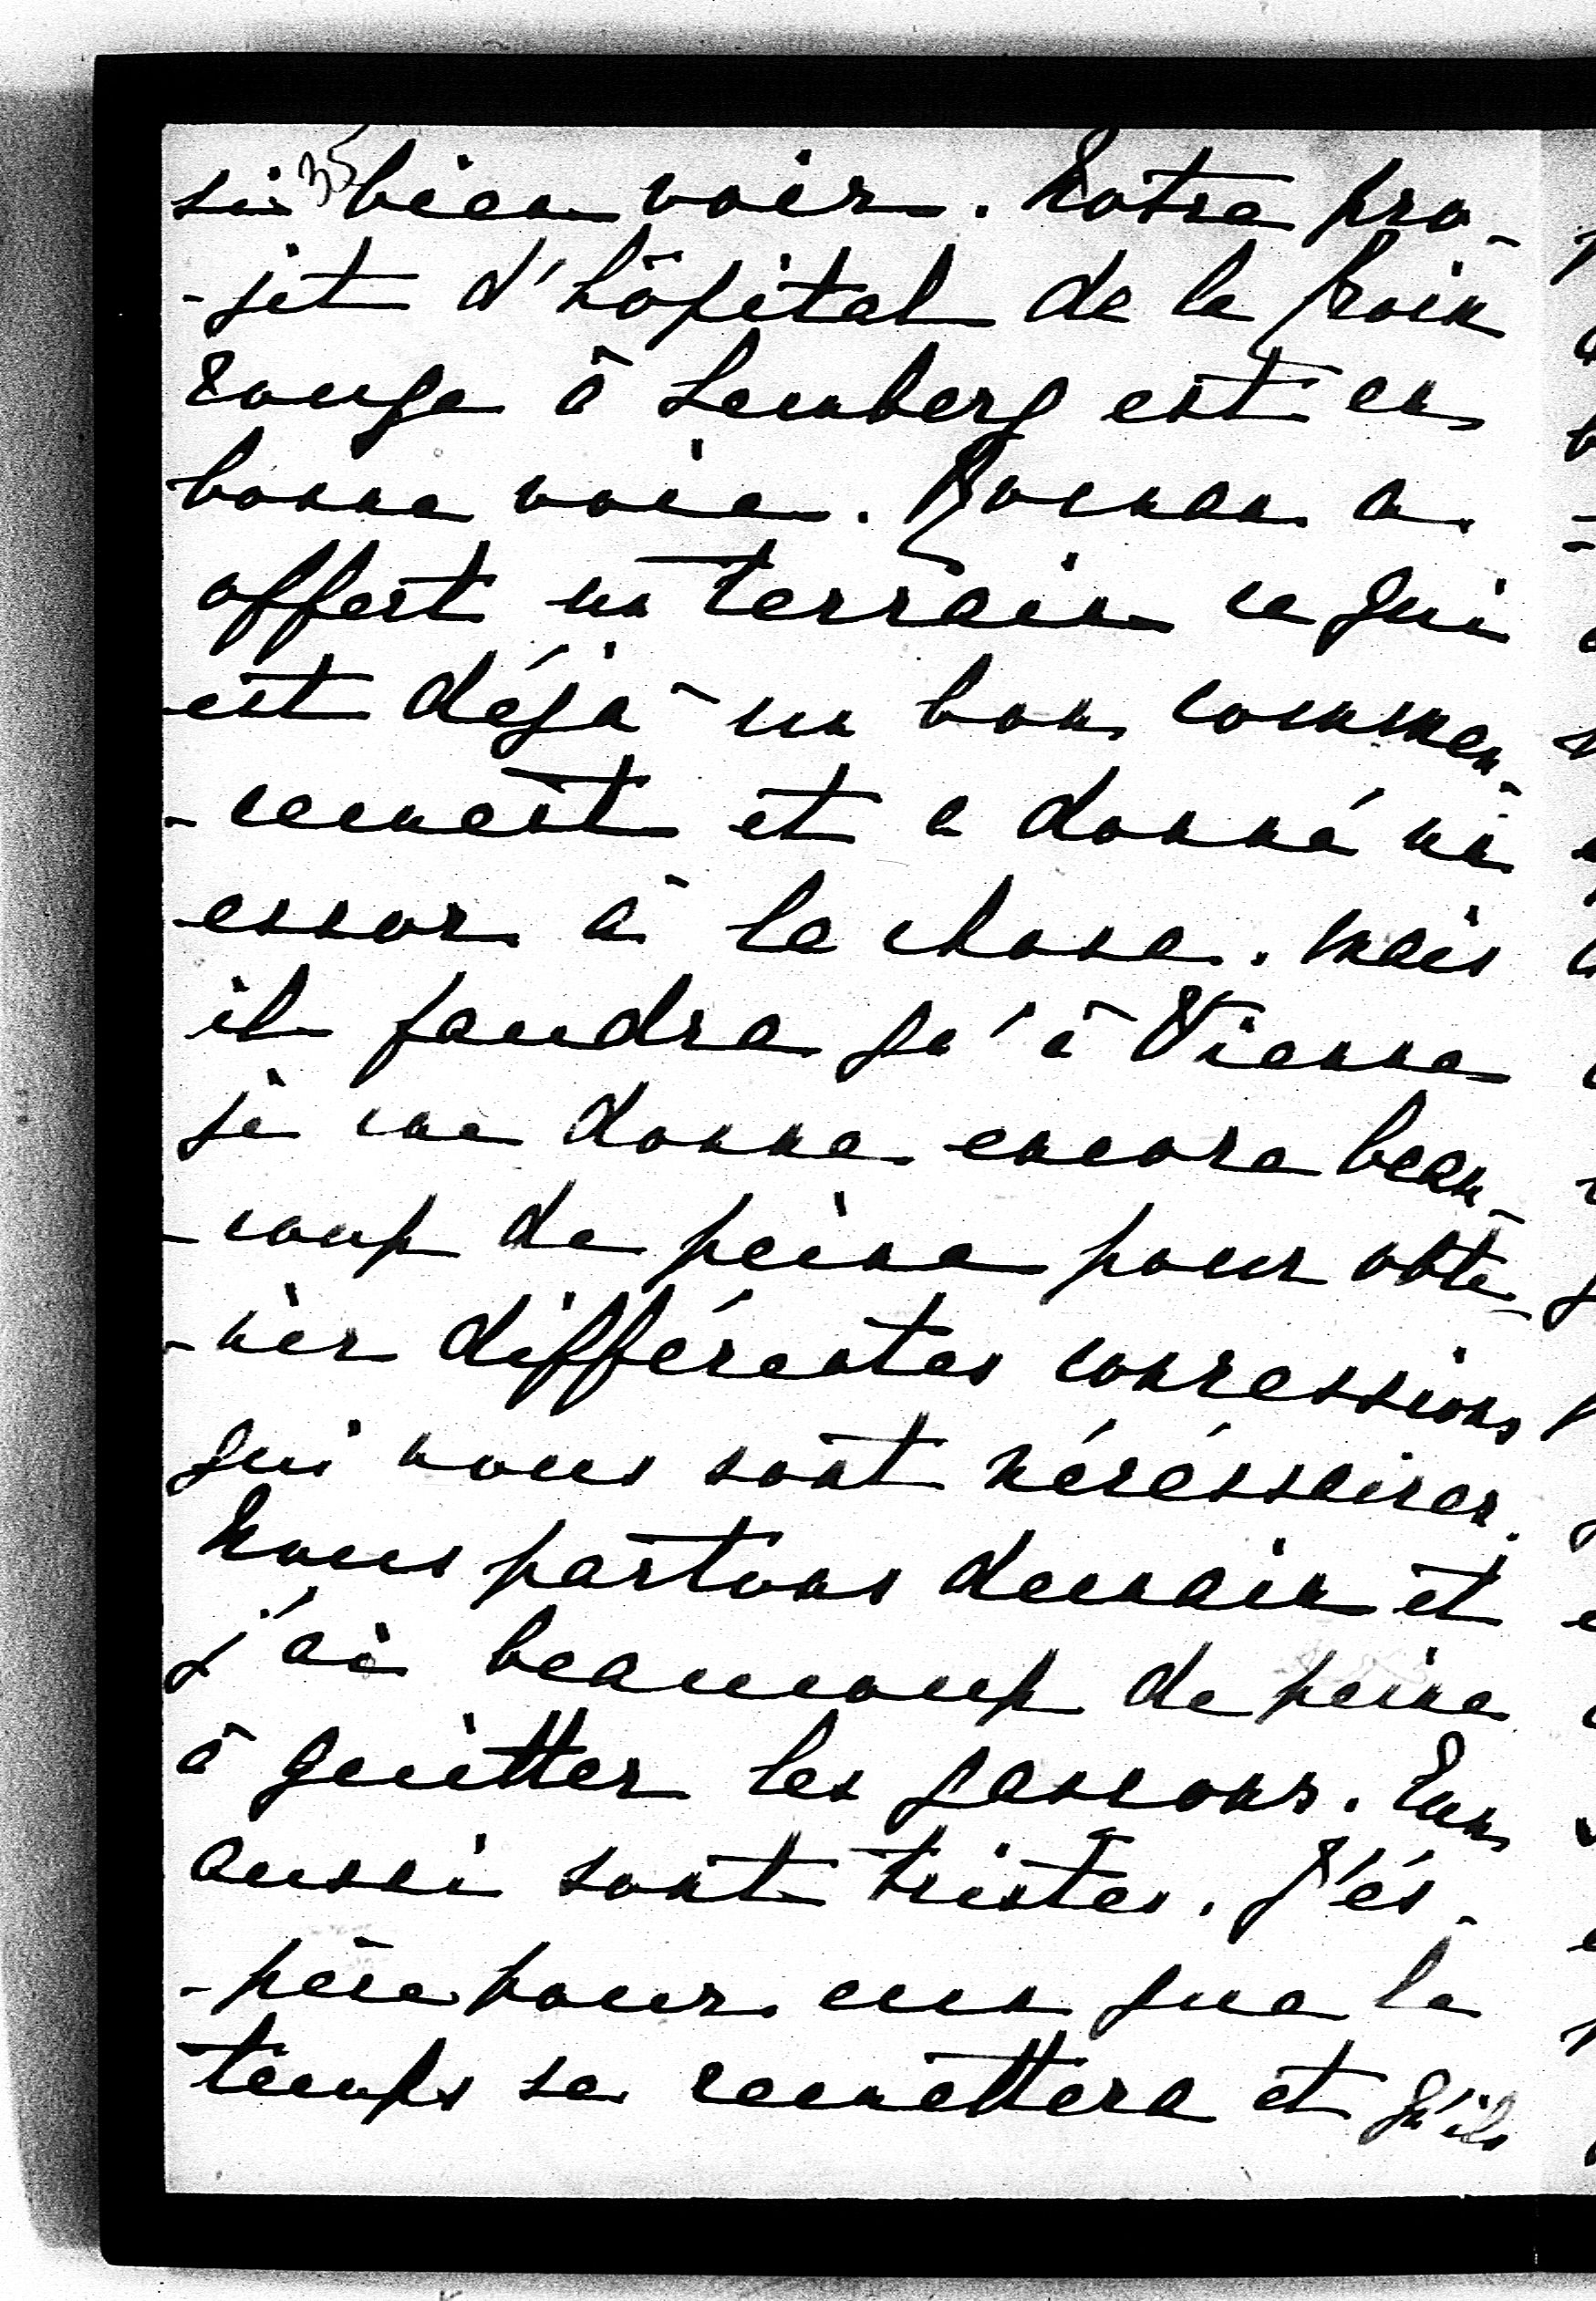 si 35 bien voir. Notre pro-
-jet d'hôpital de la Croix
rouge à Lemberg est en
bonne voie. Roman a
offert un terrain ce qui
est déjà un bon commen-
-cement et a donné un
essor à la chose. Mais
il faudra qu'à Vienne
je me donne encore beau-
-coup de peine pour obte-
-nir différentes concessions
qui nous sont nécéssaires.
Nous partons demain et
j'ai beaucoup de peine
à quitter les garcons. Eux
aussi sont tristes. J'és-
-père pour eux que le
temps se remettera et qu'ils